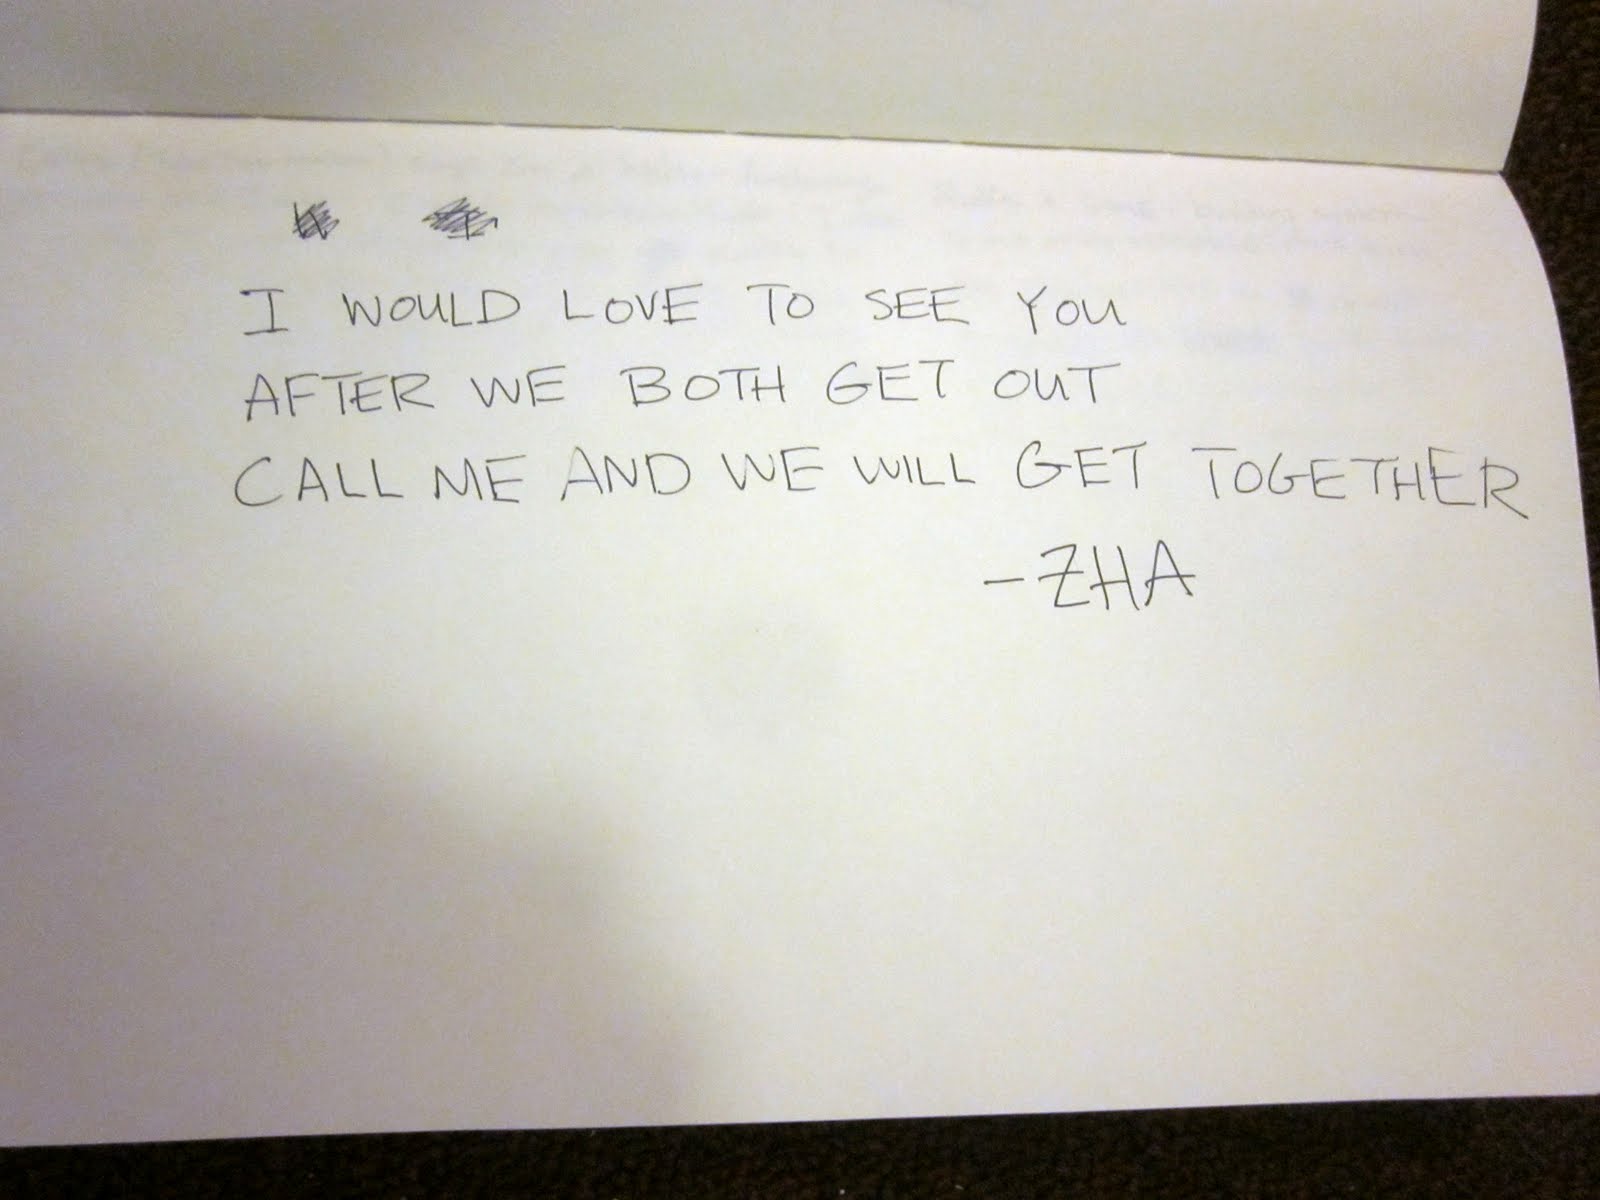 I WOULD LOVE TO SEE YOU
AFTER WE BOTH GET OUT
CALL ME AND WE WILL GET TOGETHER
-ZHA